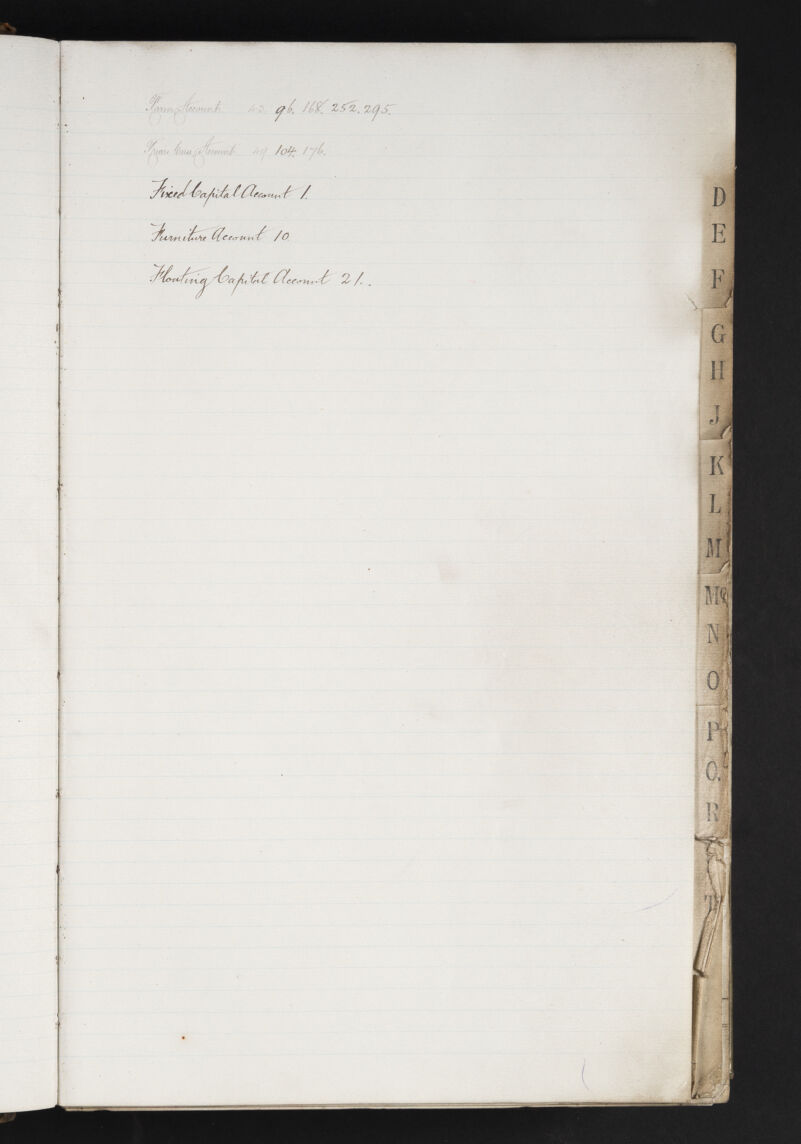 Farm Account 43. 96. 168. 252. 295.
Account 49 104. 176.
Fixed Capital Account 1.
Furniture Account 10
Floating Capital Account 21..
D
E
F
G
H
J
K
L
M
Mc
N
O
P
Q.
R
T